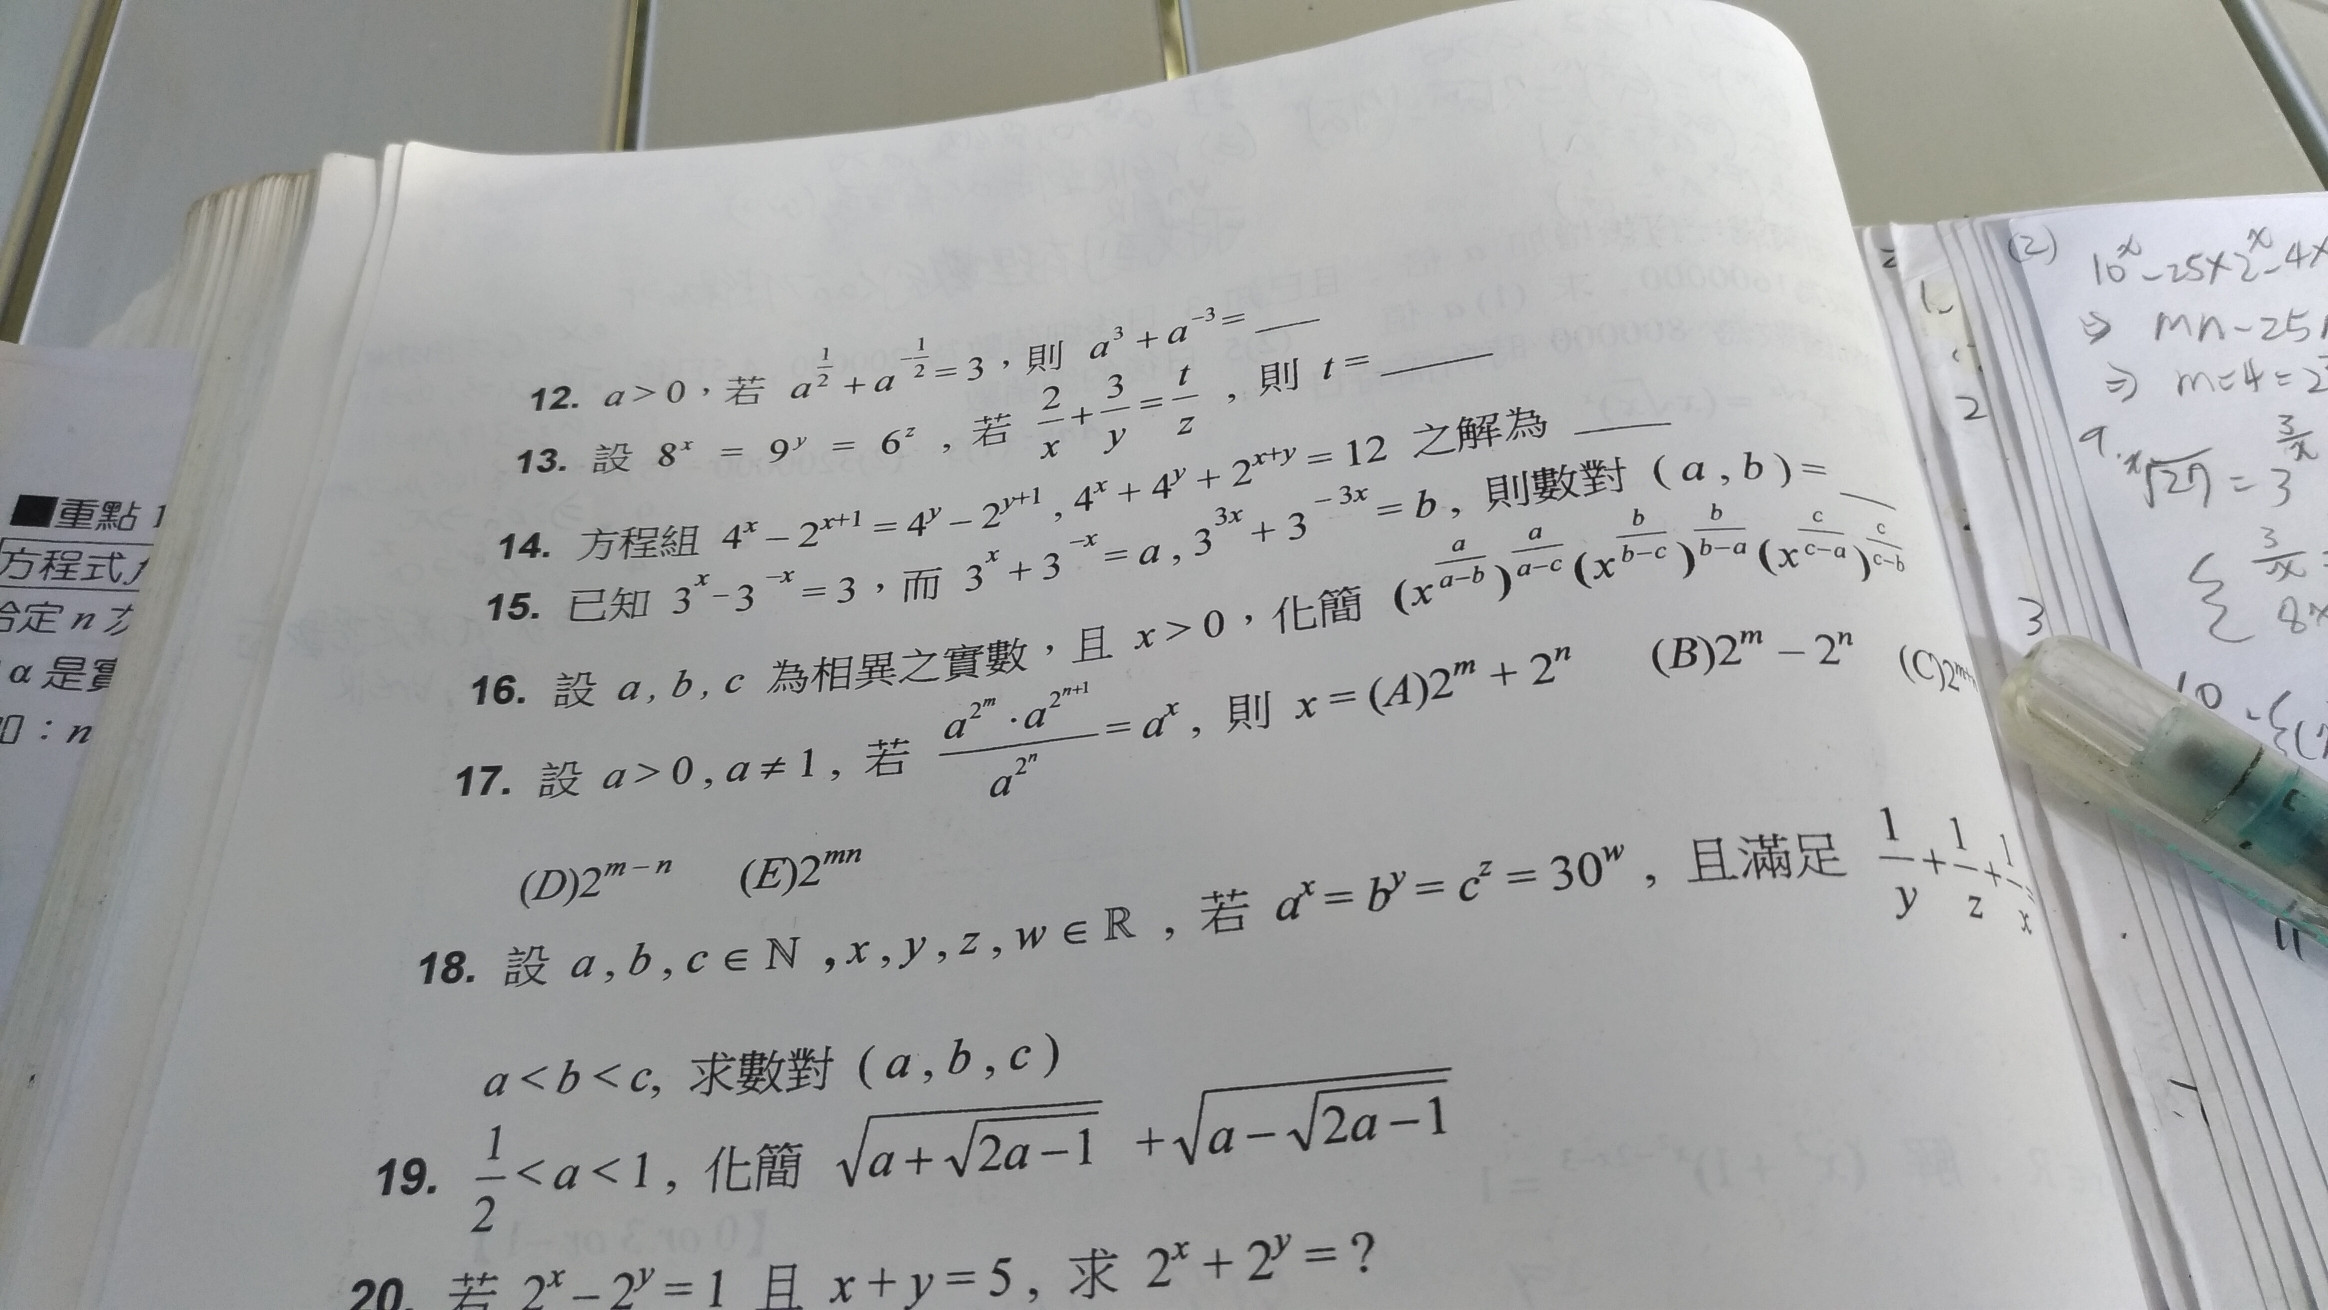 12. a>0，若 a^{\frac{1}{2}}+a^{-\frac{1}{2}}=3，則 a^3+a^{-3}=___
13. 設 8^x = 9^y = 6^z，若 \frac{2}{x}+\frac{3}{y}=\frac{t}{z}，則 t=___
14. 方程組 4^x-2^{x+1}=4^y-2^{y+1}, 4^x+4^y+2^{x+y}=12 之解為 ___
15. 已知 3^x-3^{-x}=3，而 3^x+3^{-x}=a, 3^{3x}+3^{-3x}=b，則數對 (a,b)=___
16. 設 a, b, c 為相異之實數，且 x>0，化簡 (x^{\frac{a}{a-b}})^{\frac{a}{a-c}}(x^{\frac{b}{b-c}})^{\frac{b}{b-a}}(x^{\frac{c}{c-a}})^{\frac{c}{c-b}}
17. 設 a>0, a≠1, 若 \frac{a^{2^m}·a^{2^{n+1}}}{a^{2^n}}=a^x, 則 x=(A)2^m+2^n (B)2^m-2^n (C)2^{m+n}
(D)2^{m-n} (E)2^{mn}
18. 設 a,b,c∈ℕ,x,y,z,w∈ℝ，若 a^x=b^y=c^z=30^w，且滿足 \frac{1}{y}+\frac{1}{z}+\frac{1}{x}=
a<b<c, 求數對 (a,b,c)
19. \frac{1}{2}<a<1, 化簡 \sqrt{a+\sqrt{2a-1}}+\sqrt{a-\sqrt{2a-1}}
20. 若 2^x-2^y=1 且 x+y=5, 求 2^x+2^y=?
■重點1
方程式
給定 n 次
α 是實
如：n
(2) 10^x-25×2^x-4×
⇒ mn-25
⇒ m=4=2
9. \sqrt[x]{27}=3^{\frac{3}{x}}
\frac{3}{x}=
8x
10.
11
2
3